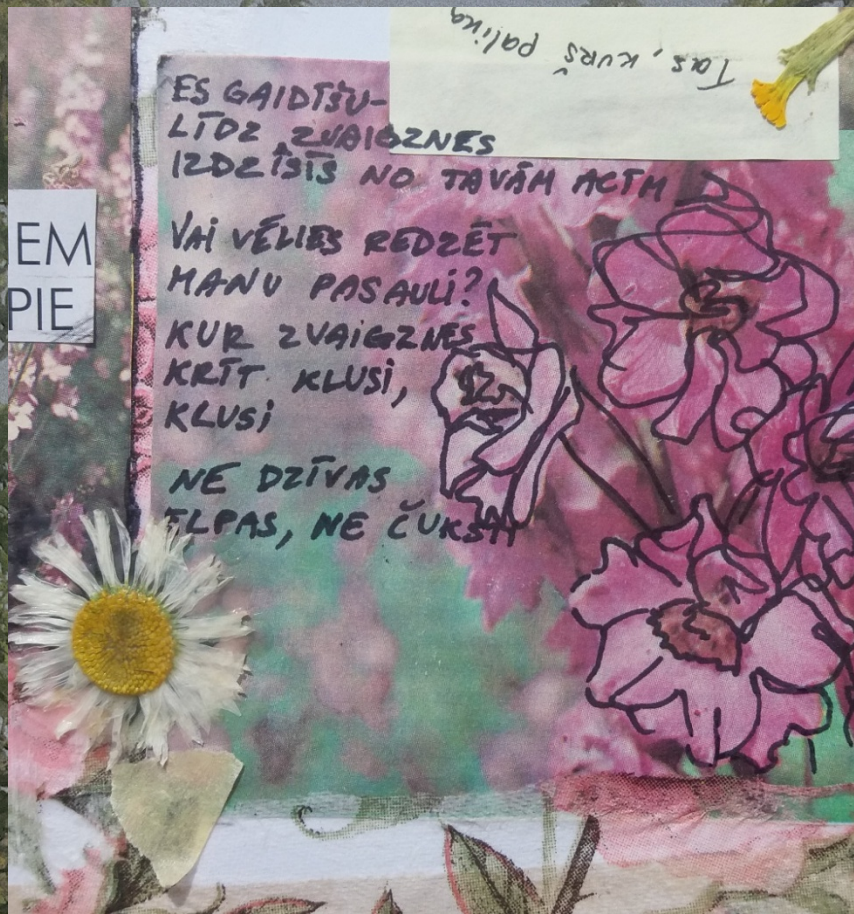 Tas, kurš palika
ES GAIDĪŠU-
LĪDZ ZVAIGZNES
IZDZĪSĪS NO TAVĀM ACĪM
VAI VĒLIES REDZĒT
MANU PASAULI?
KUR ZVAIGZNES
KRĪT KLUSI,
KLUSI
NE DZĪVAS
ELPAS, NE ČUKSTI
EM
PIE